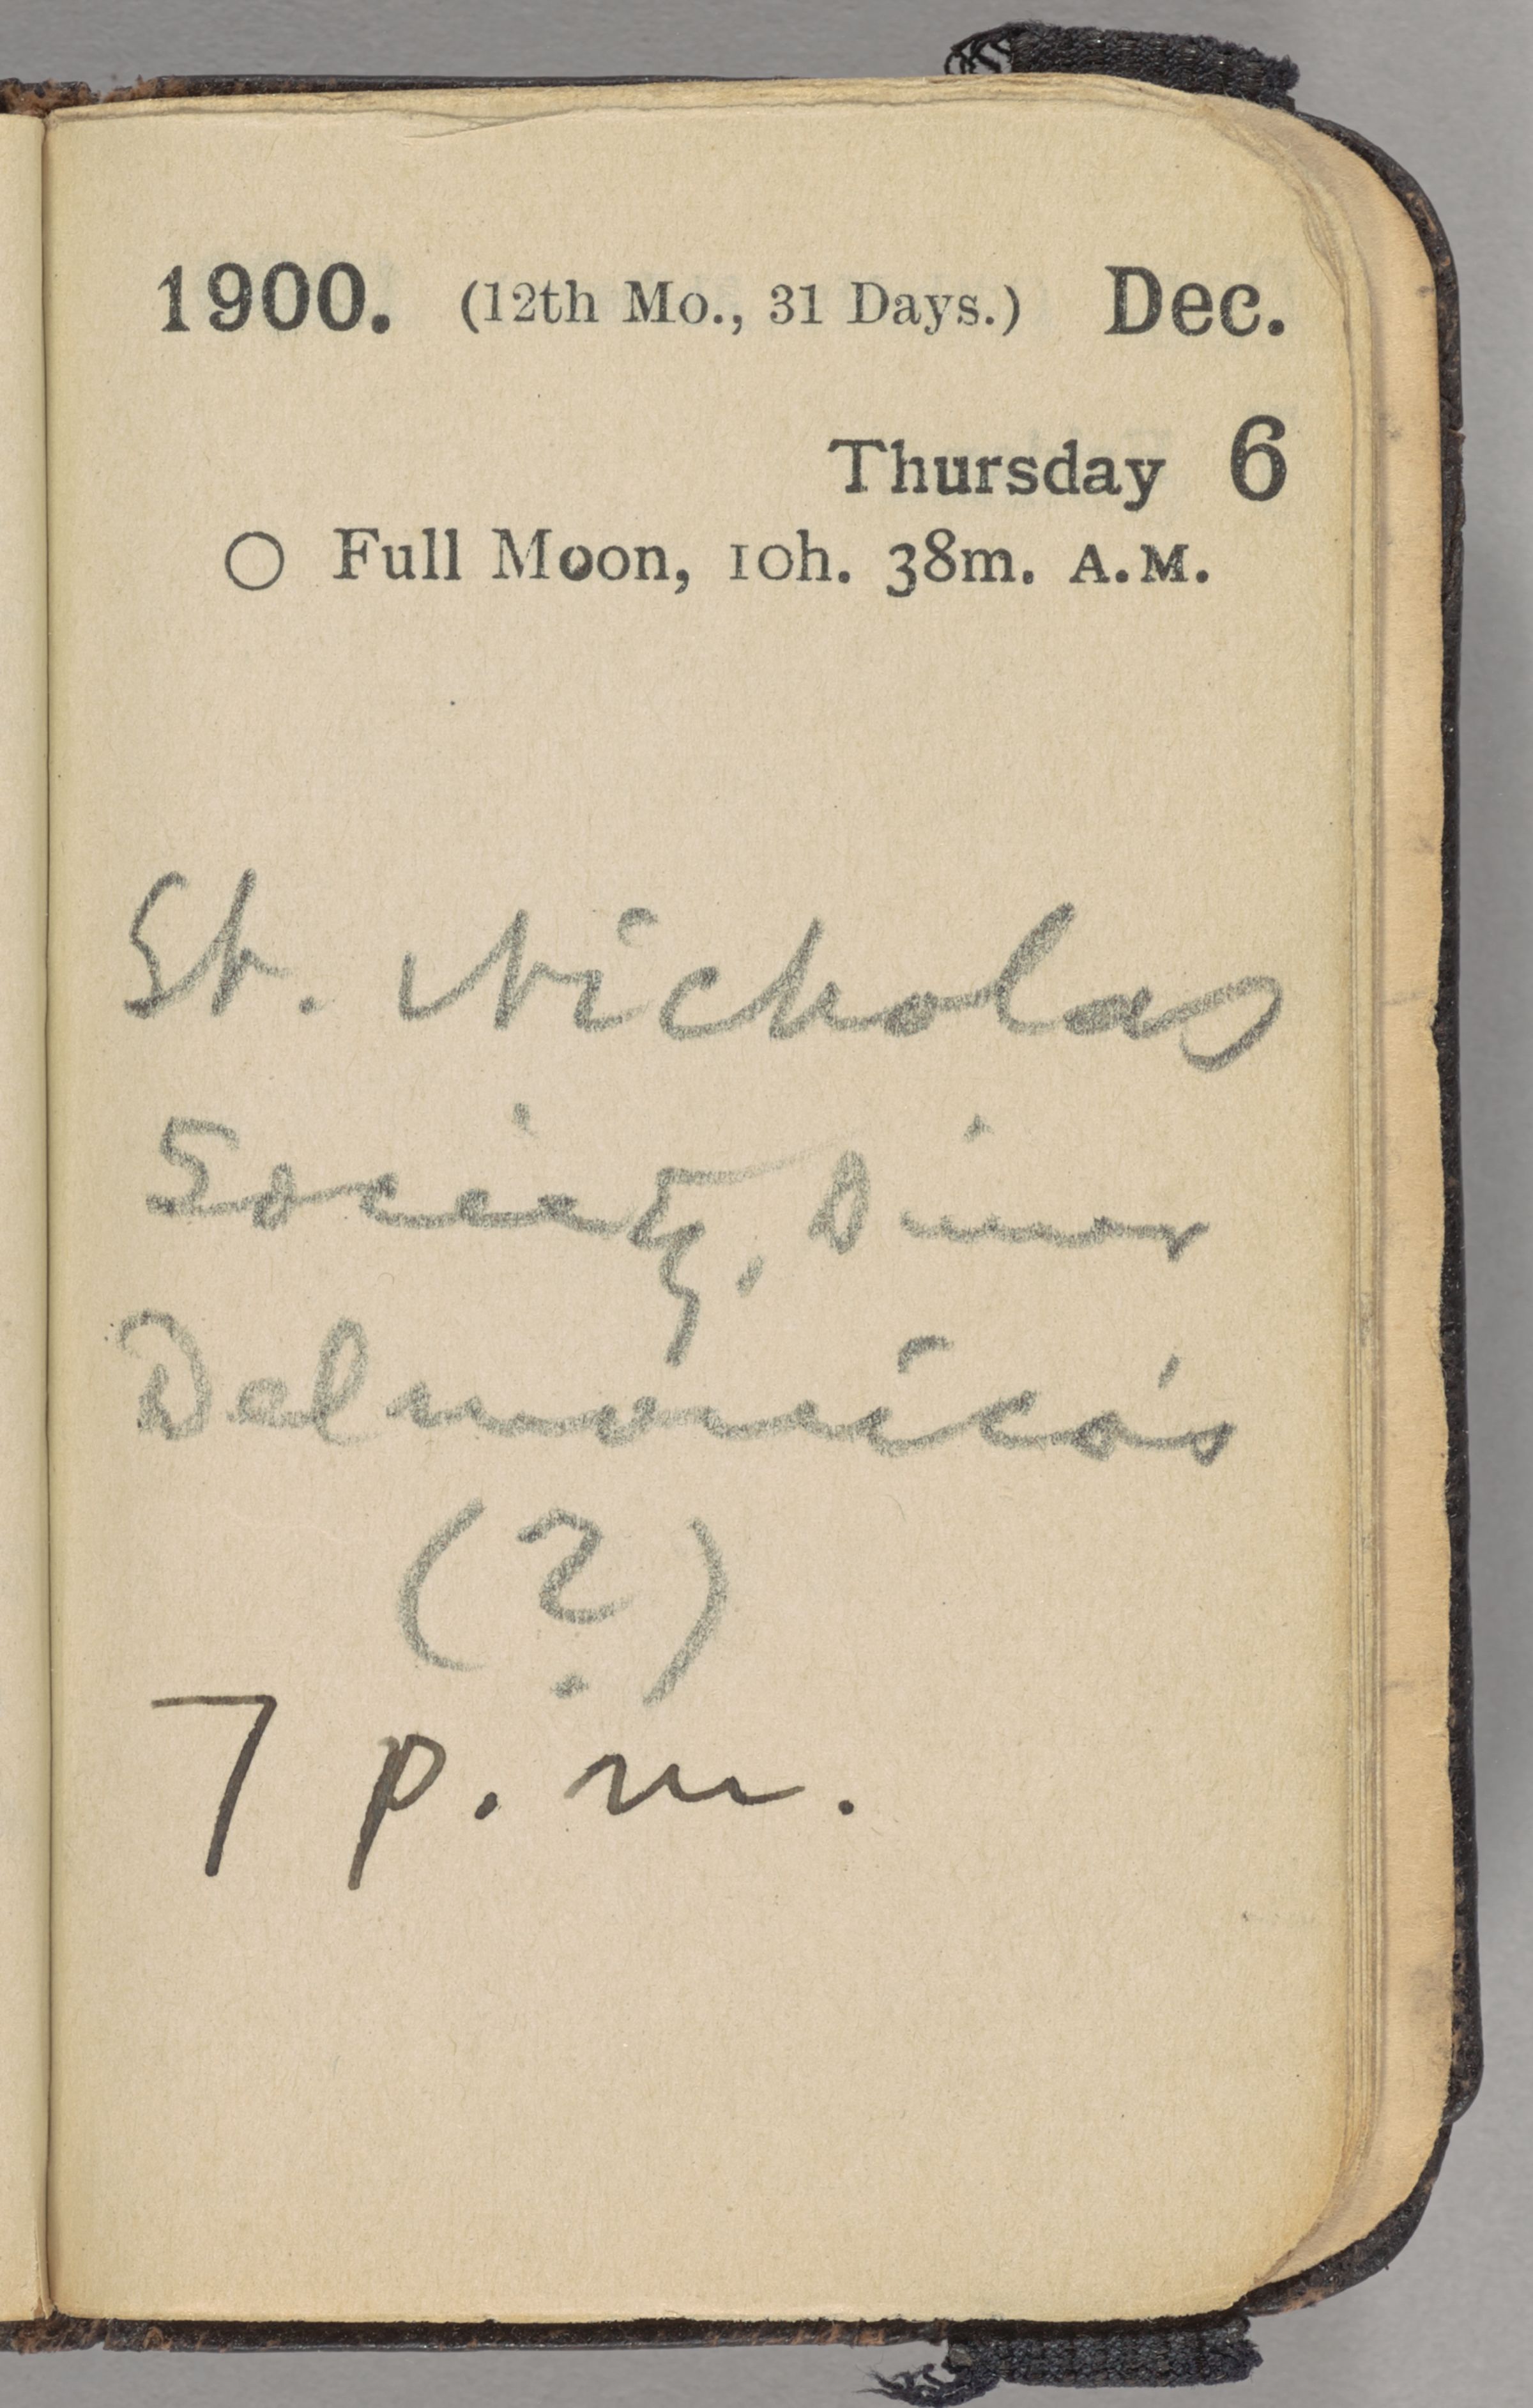 1900. (12th Mo., 31 Days.) Dec.
Thursday 6
○ Full Moon, 10h. 38m. A.M.
St. Nicholas
Society, Dinner
Delmonico's
(?)
7 p. m.